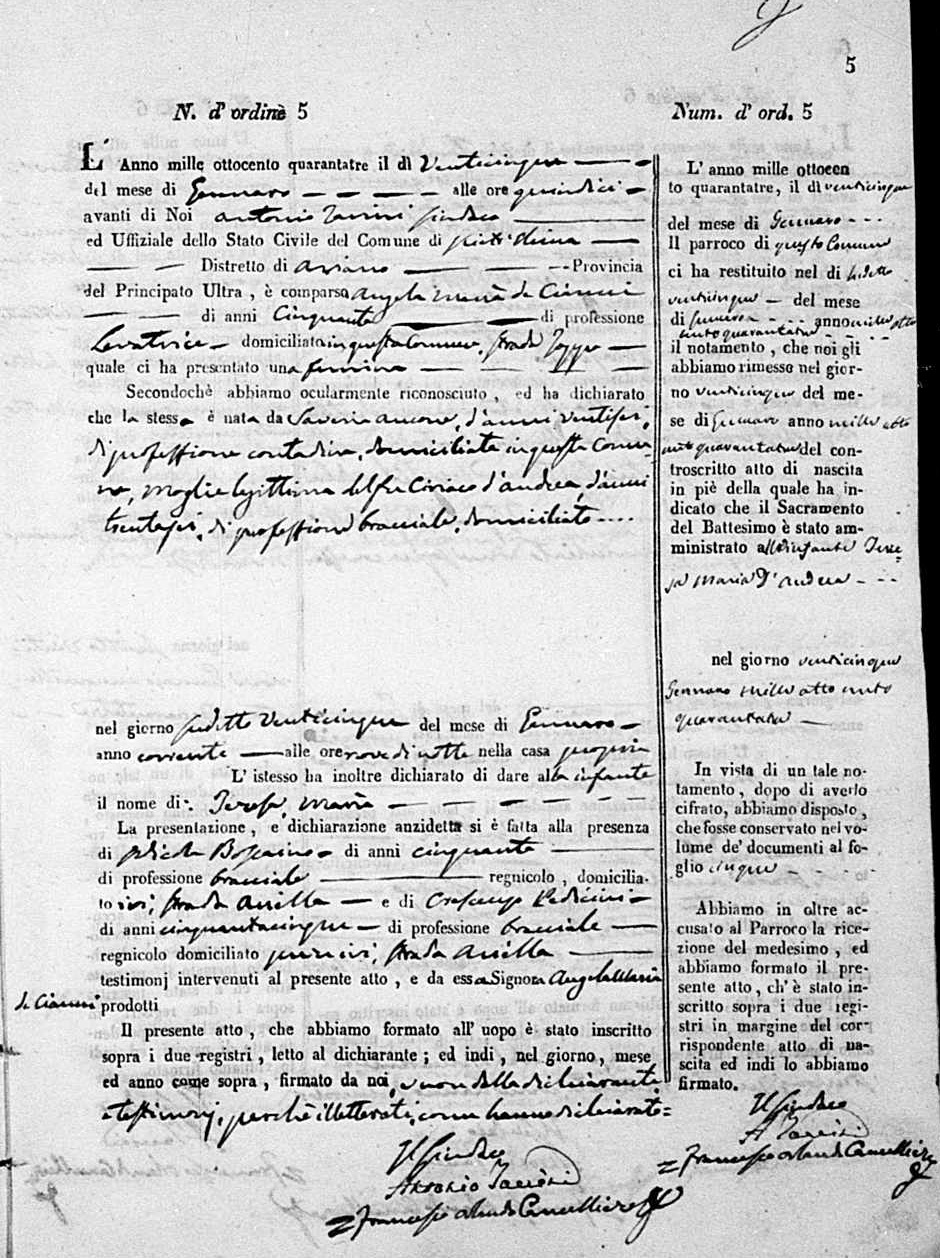 5
N. d' ordine 5
L' Anno mille ottocento quarantatre il dì Venticinque
del mese di Gennaro alle ore quindici
avanti di Noi Antonio Sindaco
ed Uffiziale dello Stato Civile del Comune di
Distretto di Ariano Provincia
del Principato Ultra, è comparsa Angela Maria de Cianni
di anni Cinquanta di professione
Levatrice domiciliata in questa Comune, strada
quale ci ha presentato una femina
Secondochè abbiamo ocularmente riconosciuto, ed ha dichiarato
che la stessa è nata da Saveria Ancone, d'anni ventisei,
di professione contadina, domiciliata in questa Comu-
ne, moglie legittima del fu Ciriaco d'Andrea, d'anni
trentasei, di professione bracciale, domiciliato....
nel giorno sudetto Venticinque del mese di Gennaro
anno corrente alle ore nove di notte nella casa propria
L' istesso ha inoltre dichiarato di dare alla infante
il nome di Teresa, Maria
La presentazione, e dichiarazione anzidetta si è fatta alla presenza
di Nicola Boscaino di anni cinquanta
di professione bracciale regnicolo, domicilia-
to ivi, strada Ariella e di Crescenzo Pedicini
di anni cinquantacinque di professione bracciale
regnicolo domiciliato pure ivi, strada Ariella
testimonj intervenuti al presente atto, e da essa Signora Angela Maria
de Cianni prodotti
Il presente atto, che abbiamo formato all' uopo è stato inscritto
sopra i due registri, letto al dichiarante; ed indi, nel giorno, mese
ed anno come sopra, firmato da noi, e non dalla dichiarante,
e testimonj, perchè illetterati, come hanno dichiarato=
Il Sindaco
Antonio
Francesco Cancelliere
Num. d' ord. 5
L' anno mille ottocen
to quarantatre, il dì venticinque
del mese di Gennaro
Il parroco di questo Comune
ci ha restituito nel dì sudetto
venticinque del mese
di Gennaro anno mille otto
cento quarantatre
il notamento, che noi gli
abbiamo rimesso nel gior-
no venticinque del me-
se di Gennaro anno mille otto
cento quarantatre del con-
troscritto atto di nascita
in piè della quale ha in-
dicato che il Sacramento
del Battesimo è stato am-
ministrato all'infante Tere-
sa Maria D'Andrea
nel giorno venticinque
Gennaro mille otto cento
quarantatre
In vista di un tale no-
tamento, dopo di averlo
cifrato, abbiamo disposto,
che fosse conservato nel vo-
lume de' documenti al fo-
glio cinque
Abbiamo in oltre ac-
cusato al Parroco la rice-
zione del medesimo, ed
abbiamo formato il pre-
sente atto, ch' è stato in-
scritto sopra i due regi-
stri in margine del cor-
rispondente atto di na-
scita ed indi lo abbiamo
firmato.
Il Sindaco
A
Francesco Cancelliere